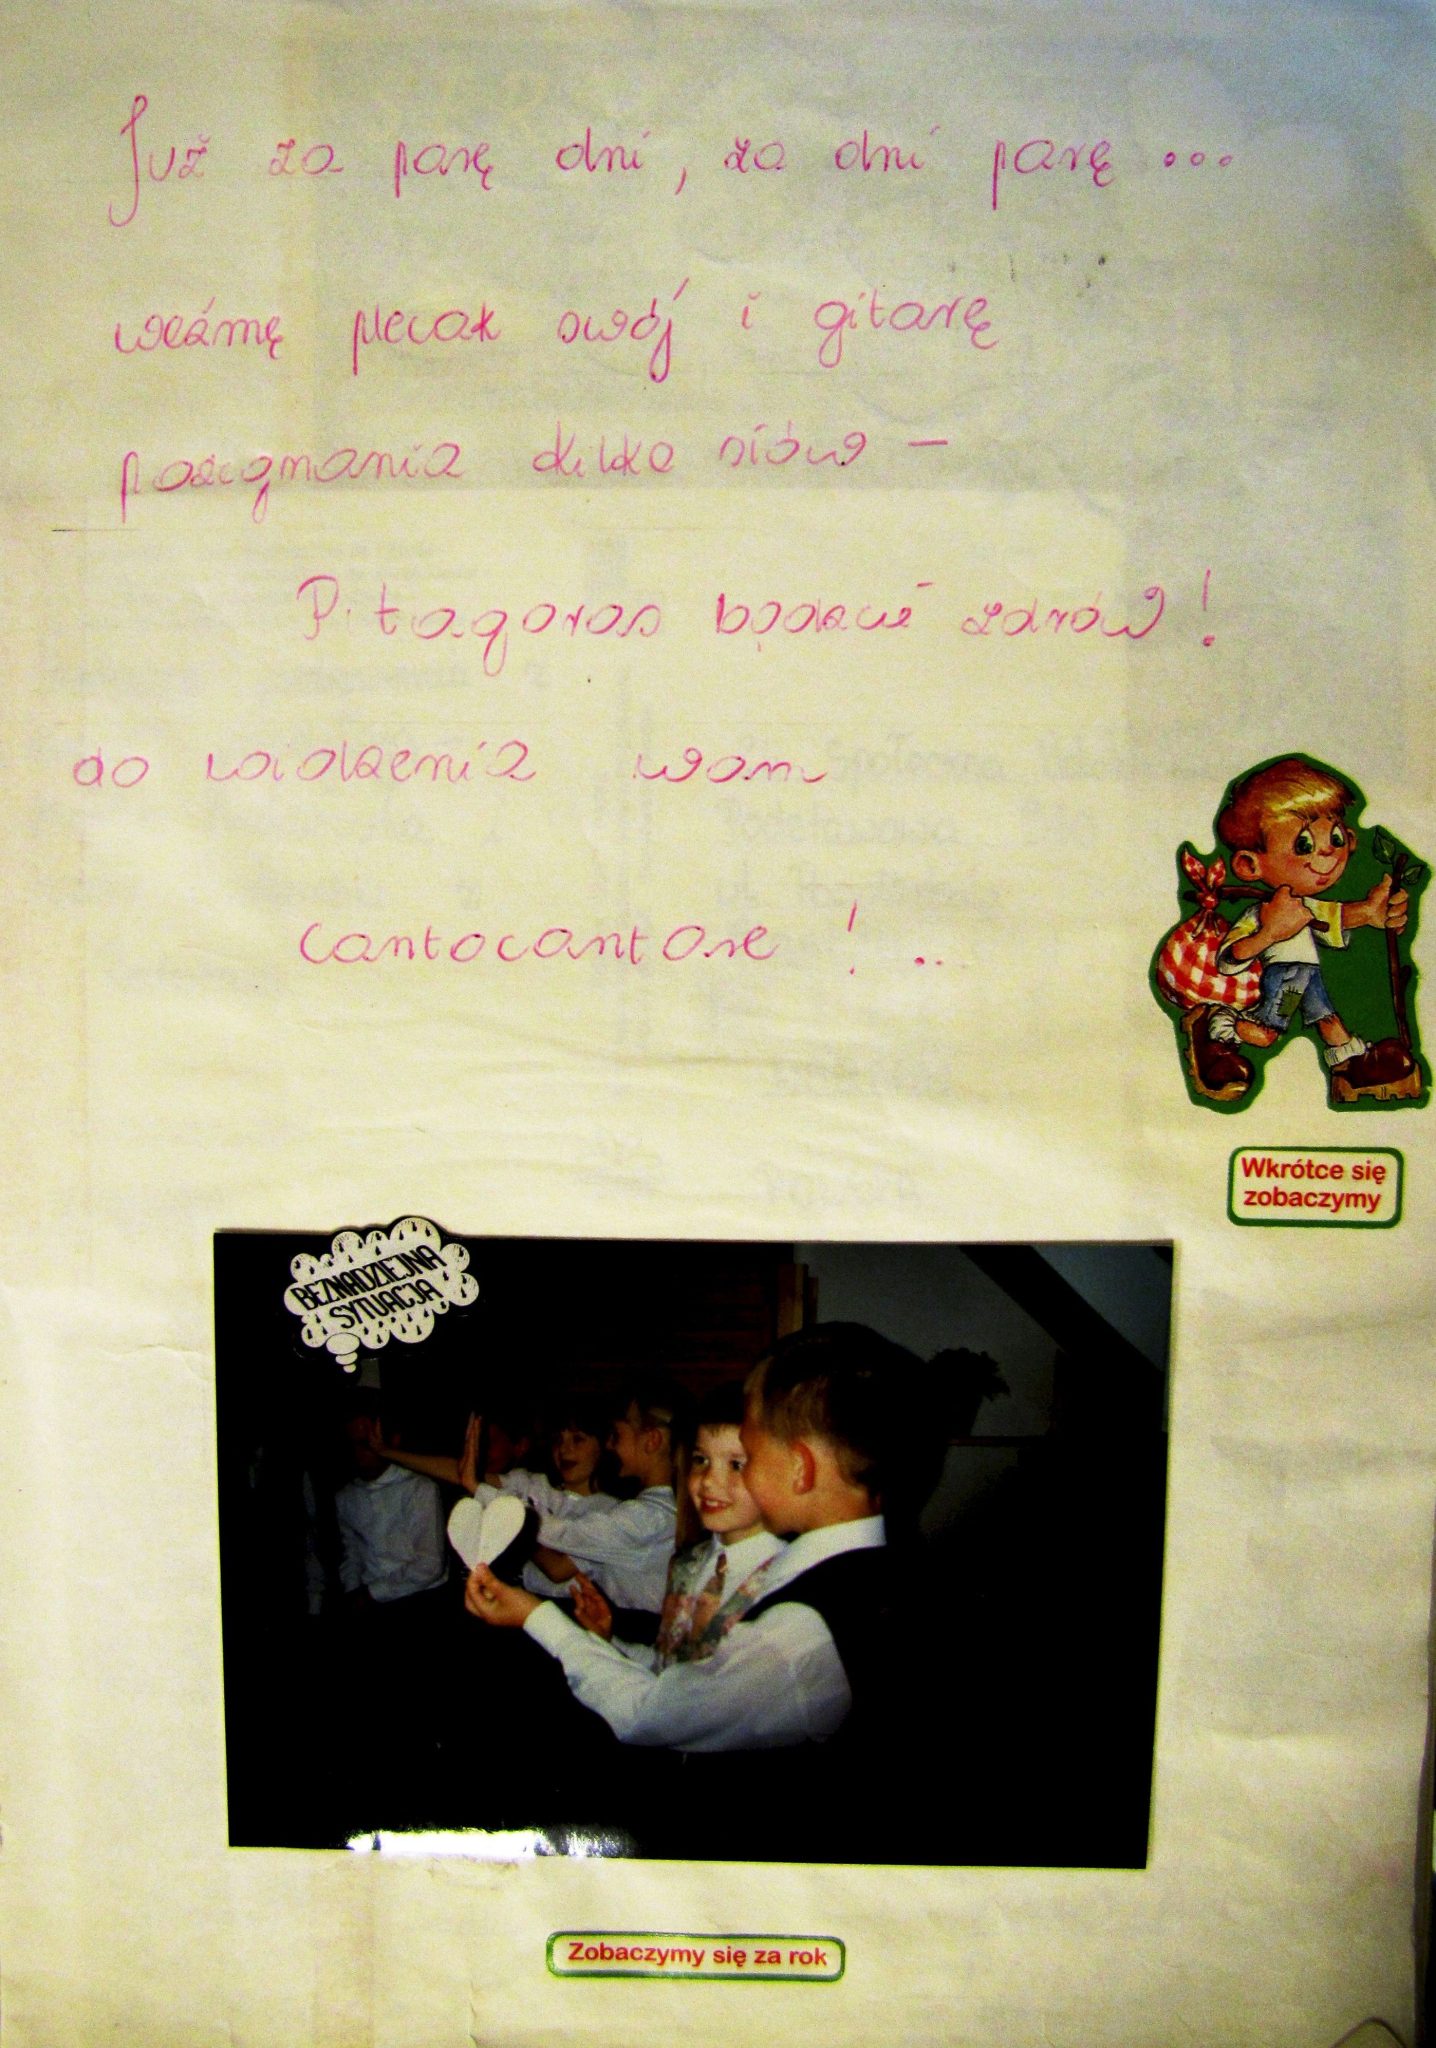 Już za parę dni, za dni parę...
wezmę plecak swój i gitarę
pożegnania kilka słów -
Pitagoras bądźcie zdrów!
do widzenia wam
cantocantare! ..
Wkrótce się
zobaczymy
BEZNADZIEJNA
SYTUACJA
Zobaczymy się za rok